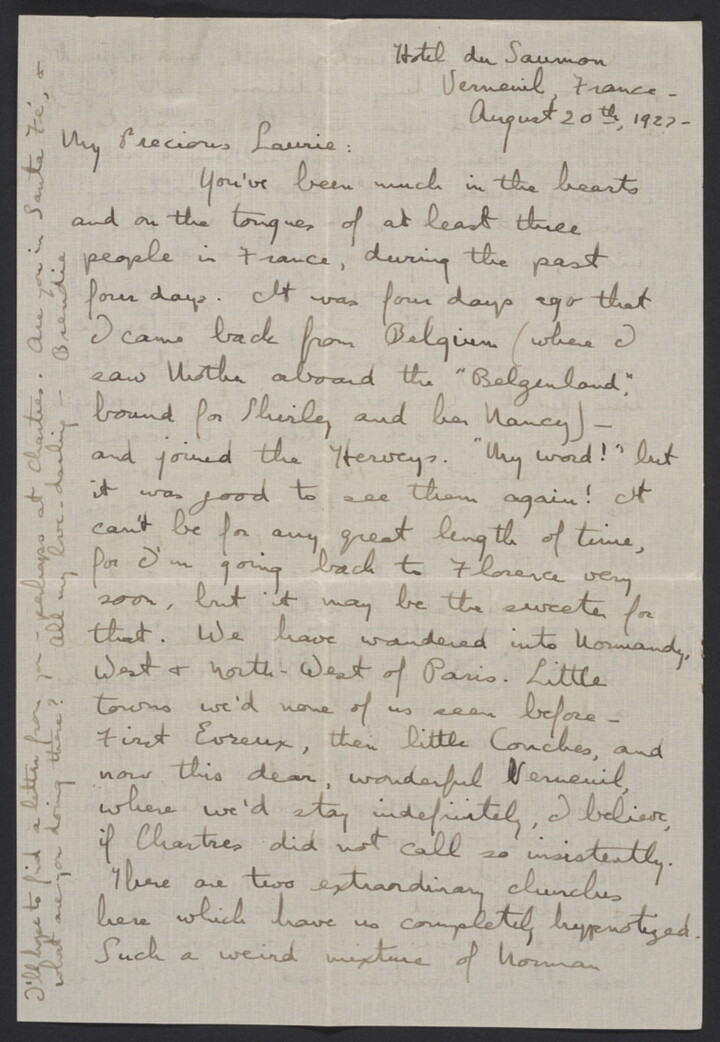 Hotel du Saumon
Verneuil, France -
August 20th, 1927 -
My Precious Laurie:
You've been much in the hearts
and on the tongues of at least three
people in France, during the past
four days. It was four days ago that
I came back from Belgium (where I
saw Mother aboard the "Belgenland",
bound for Shirley and her Nancy) -
and joined the Herveys. "My word!" but
it was good to see them again! It
can't be for any great length of time,
for I'm going back to Florence very
soon, but it may be the sweeter for
that. We have wandered into Normandy,
West + North-West of Paris. Little
towns we'd none of us seen before -
First Evreux, then little Conches, and
now this dear, wonderful Verneuil,
where we'd stay indefinitely, I believe,
if Chartres did not call so insistently.
There are two extraordinary churches
here which have us completely hypnotized.
Such a weird mixture of Norman
I'll hope to find a letter from you - perhaps at Chartres. Are you in Santa Fé, &
what are you doing there? All my love - darling - Brendie